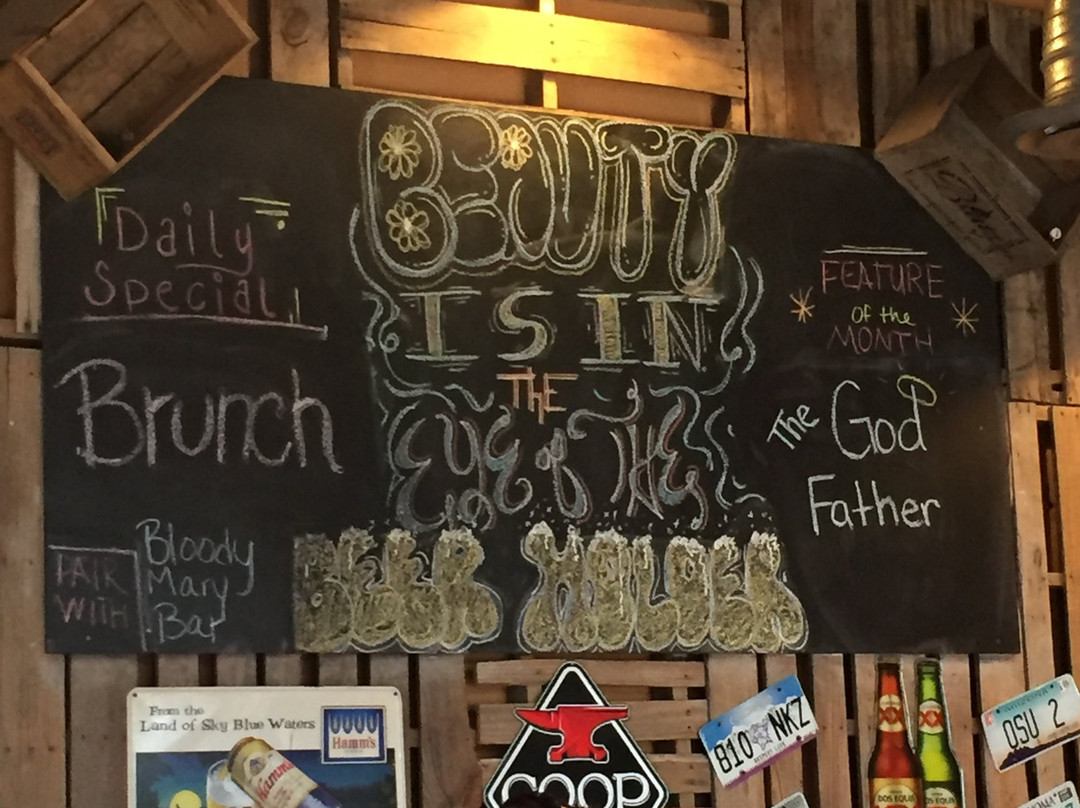 BEAUTY
IS IN
THE
EYE of THE
BEER HOLDER
Daily
Special
Brunch
PAIR
WITH
Bloody
Mary
Bar
FEATURE
of the
MONTH
The God
Father
From the
Land of Sky Blue Waters
Hamm's
Hamm's
COOP
810 NKZ
XX
DOS EQUIS
XX
DOS EQUIS
OSU 2